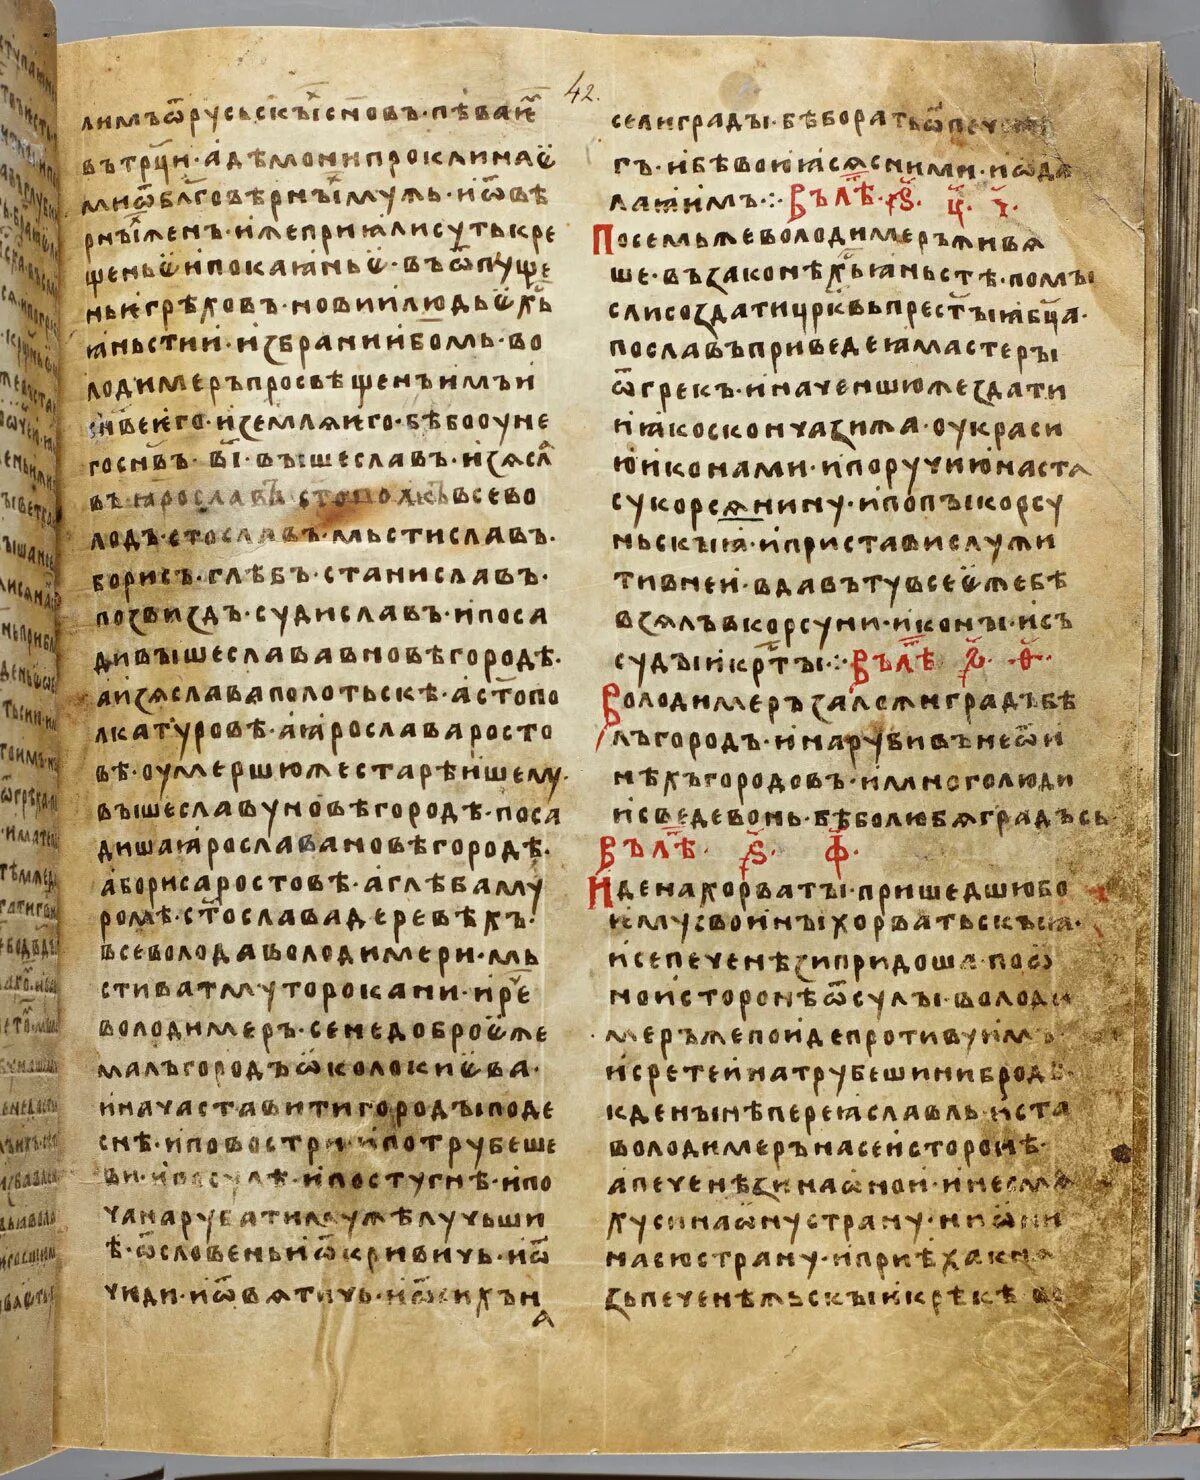 42.
лимъѿрусьскъıхсн҃овъ·пѣваѥ
вътрц҃и·адѣмонипроклинаѥ
миѿбл҃говѣрнъıхмужь·иѿвѣ
рнъıхженъ·ижеприӕлисутькре
щеньєипокаӕньє·въѿпуще
ньигрѣховъ·новиилюдьєхь
ӕньстии·избраниибм҃ь·во
лодимеръпросвѣщенъимъи
сн҃веиѥго·иземлѧиѥго·бѣбооуне
госн҃въ·в҃і·въıшеславъ·изѧсла
въ·ӕрославъ·ст҃ополкъ·всево
лодъ·ст҃ославъ·мьстиславъ·
борисъ·глѣбъ·станиславъ·
позвиздъ·судиславъ·ипоса
дивъıшеслававновѣгородѣ·
аизѧславаполотьскѣ·аст҃опо
лкатуровѣ·аӕрославаросто
вѣ·оумершюжестарѣишему·
въıшеславуновѣгородѣ·поса
дишаӕрославановѣгородѣ·
аборисаростовѣ·аглѣбаму
ромѣ·ст҃ославадеревѣхъ·
всеволодаволодимери·мь
стиватмуторокани·ире҃
володимеръ·сенедоброєже
малъгородъѡколокиєва·
иначаставитигородъıподе
снѣ·иповостри·ипотрубеше
ви·ипосулѣ·ипостугнѣ·ипо
чанарубатимужѣлучьши
ѣ·ѿсловень·иѿкривичь·иѿ
чюди·иѿвѧтичь·иѿсихън
а
селиградъı·бѣборатьѿпеченѣ
гъ·ибѣвоюӕсѧсними·иѡдо
лаӕимъ·:·Вълѣ҃·҂ѕ҃·ц҃·ч҃·
Посемьжеволодимеръживѧ
ше·възаконѣхь҃ӕньстѣ·помъı
слисоздатицр҃квьпрест҃ъıӕбц҃а·
пославъприведеӕмастеръı
ѿгрекъ·иначеншюжездати
иӕкоскончазижа·оукраси
юиконами·ипоручиюнаста
сукорсѧнину·ипопъıкорсу
ньскъıӕ·иприставислужи
тивнеи·вдавътувсеєжебѣ
взѧлъвкорсуни·иконъı·исъ
судъıикрт҃ъı·:·Вълѣ҃·҂ѕ҃·ц҃·ч҃·ѳ҃·
Володимеръзалѳжиградъбѣ
лъгородъ·инарубивънеѿи
нѣхъгородовъ·имноголюди
исведевонь·бѣболюбѧградъсь·
Вълѣ҃·҂ѕ҃·ф҃·
Иденахорватъı·пришедшюбо
ѥмусвоинъıхорватьскъıӕ·
исепеченѣзипридоша·поѡ
ноисторонѣѿсулъı·володи
меръжепоидепротивуимъ·
исретеинатрубешинибродѣ·
кденъıнѣпереӕславль·иста
володимеръnaсеисторонѣ·
апеченѣзинаѡнои·инесмѧ
хусинаѡнустрану·ниѡни
насюстрану·иприѣхакнѧ
зьпеченѣжьскъıикрѣкѣ·во